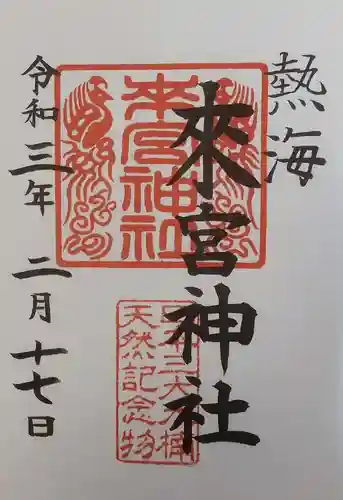 熱海
來宮神社
令和三年 二月十七日
来宮神社
日本三大樟
天然記念物